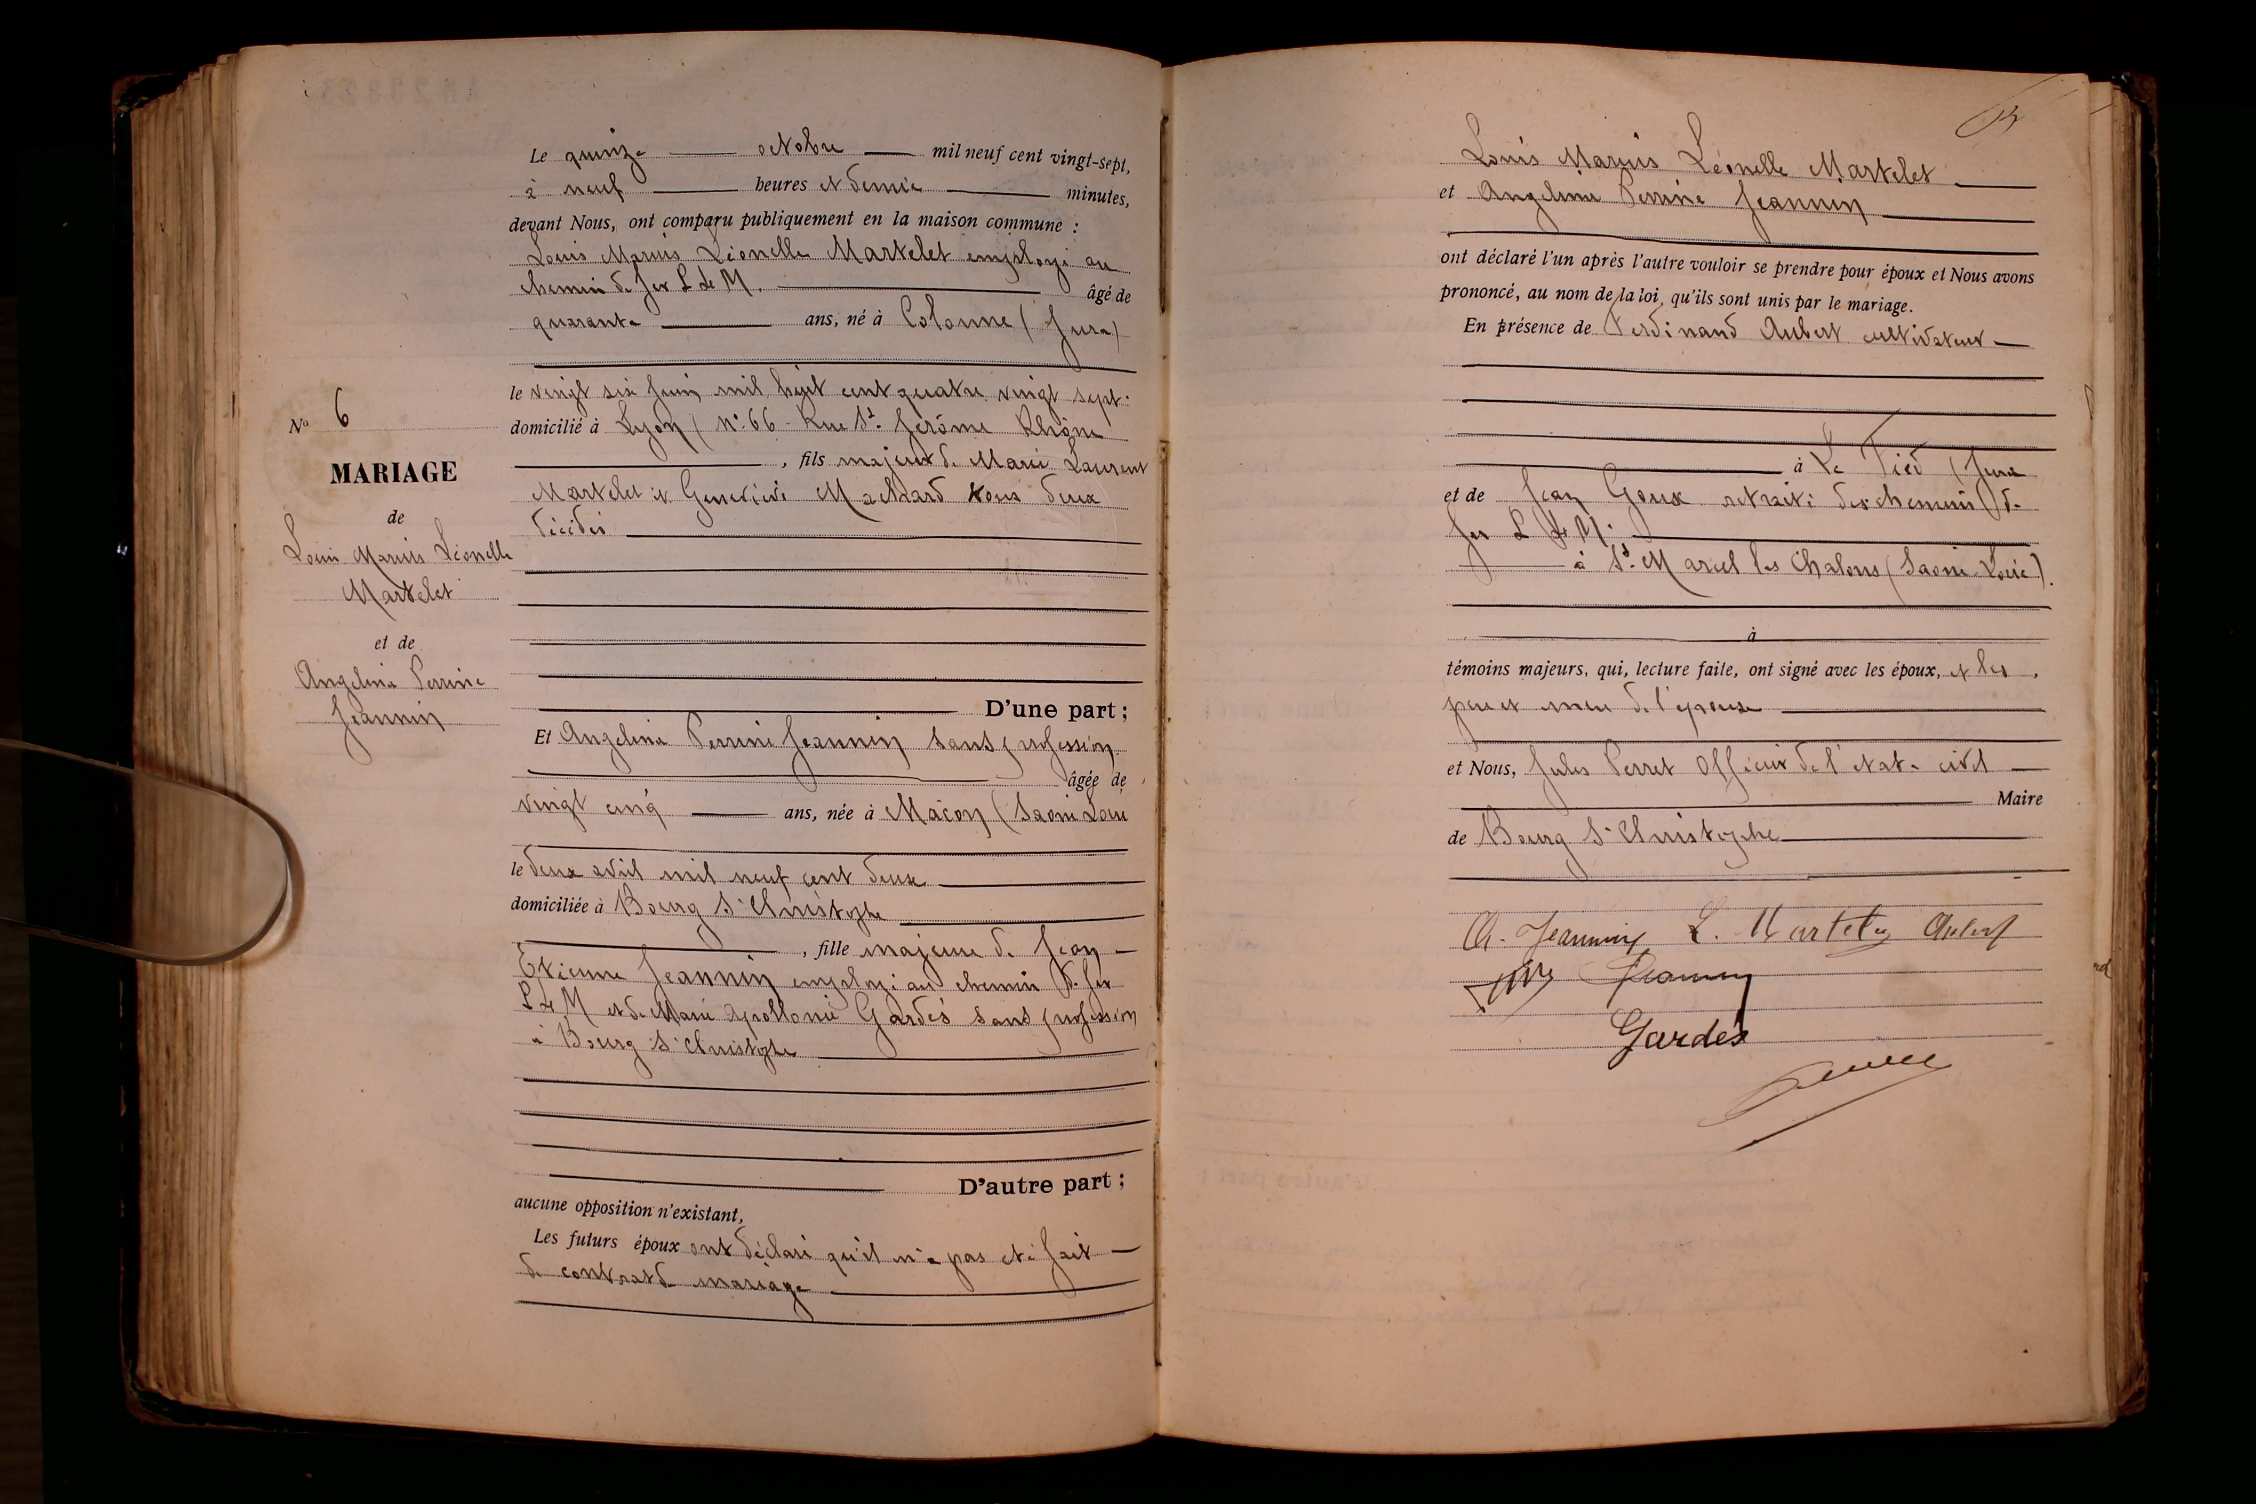 Le quinze octobre mil neuf cent vingt-sept,
à neuf heures et demie minutes,
devant Nous, ont comparu publiquement en la maison commune :
Louis Marius Léonelle Martelet employé au
chemin de fer P de M. âgé de
quarante ans, né à Colonne (Jura)
le vingt six juin mil huit cent quatre vingt sept.
domicilié à Lyon (N° 66 - Rue St Jérôme Rhône
, fils majeur de Marie Laurent
Martelet et Geneviève Machard tous deux
décédés
D'une part ;
Et Angelina Perrine Jeannin sans profession
âgée de
vingt cinq ans, née à Macon (Saone Loire
le deux avril mil neuf cent deux
domiciliée à Bourg St Christophe
, fille majeure de Jean
Etienne Jeannin employé au chemin de fer
P de M et de Marie Apollonie Gardès sans profession
à Bourg St Christophe
D'autre part ;
aucune opposition n'existant,
Les futurs époux ont déclaré qu'il n'a pas été fait
de contrat de mariage
No 6
MARIAGE
de
Louis Marius Léonelle
Martelet
et de
Angelina Perrine
Jeannin
Louis Marius Léonelle Martelet
et Angelina Perrine Jeannin
ont déclaré l'un après l'autre vouloir se prendre pour époux et Nous avons
prononcé, au nom de la loi, qu'ils sont unis par le mariage.
En présence de Ferdinand Aubert cultivateur
à Le Fied (Jura
et de Jean Goux retraité des chemins de
fer P de M.
à St Marcel les Chalons (Saone Loire).
à
témoins majeurs, qui, lecture faite, ont signé avec les époux, et les
père et mère de l'épouse
et Nous, Jules Perret Officier de l'état civil
Maire
de Bourg St Christophe
A. Jeannin L. Martelet Aubert
Jeannin
Gardès